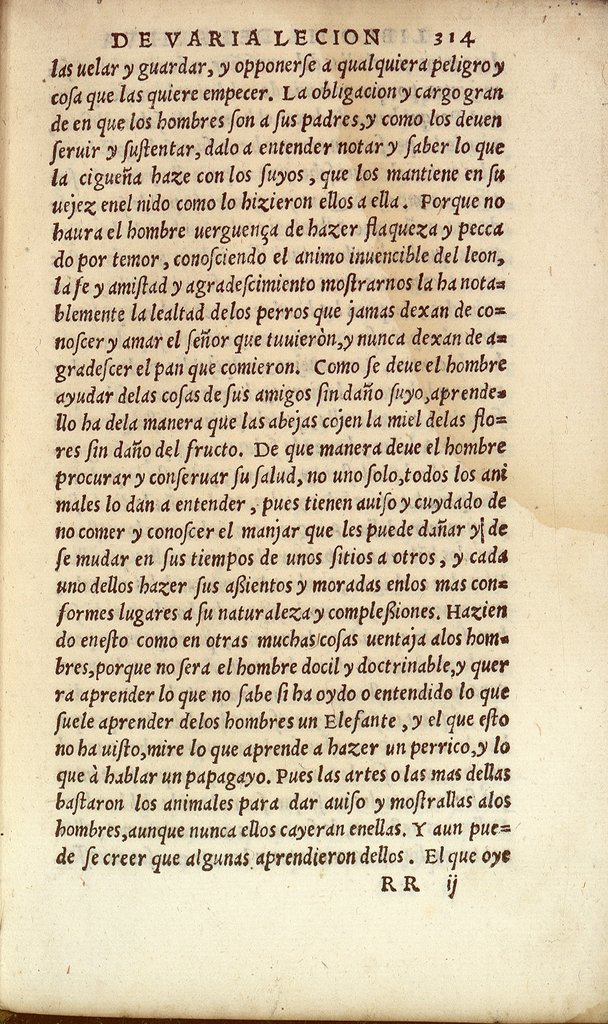 DE VARIA LECION 314
las uelar y guardar, y opponerſe a qualquiera peligro y
coſa que las quiere empecer. La obligacion y cargo gran
de en que los hombres ſon a ſus padres, y como los deuen
ſeruir y ſuſtentar, dalo a entender notar y ſaber lo que
la cigueña haze con los ſuyos, que los mantiene en ſu
uejez enel nido como lo hizieron ellos a ella. Porque no
haura el hombre uerguença de hazer flaqueza y pecca
do por temor, conoſciendo el animo inuencible del leon,
la fe y amiſtad y agradeſcimiento moſtrarnos la ha nota=
blemente la lealtad delos perros que jamas dexan de co=
noſcer y amar el ſeñor que tuuieròn, y nunca dexan de a=
gradeſcer el pan que comieron. Como ſe deue el hombre
ayudar delas coſas de ſus amigos ſin daño ſuyo, aprende=
llo ha dela manera que las abejas cojen la miel delas flo=
res ſin daño del fructo. De que manera deue el hombre
procurar y conſeruar ſu ſalud, no uno ſolo, todos los ani
males lo dan a entender, pues tienen auiſo y cuydado de
no comer y conoſcer el manjar que les puede dañar y de
ſe mudar en ſus tiempos de unos ſitios a otros, y cada
uno dellos hazer ſus aßientos y moradas enlos mas con=
formes lugares a ſu naturaleza y compleßiones. Hazien
do eneſto como en otras muchas coſas uentaja alos hom=
bres, porque no ſera el hombre docil y doctrinable, y quer
ra aprender lo que no ſabe ſi ha oydo o entendido lo que
ſuele aprender delos hombres un Elefante, y el que eſto
no ha uiſto, mire lo que aprende a hazer un perrico, y lo
que à hablar un papagayo. Pues las artes o las mas dellas
baſtaron los animales para dar auiſo y moſtrallas alos
hombres, aunque nunca ellos cayeran enellas. Y aun pue=
de ſe creer que algunas aprendieron dellos. El que oye
RR ij